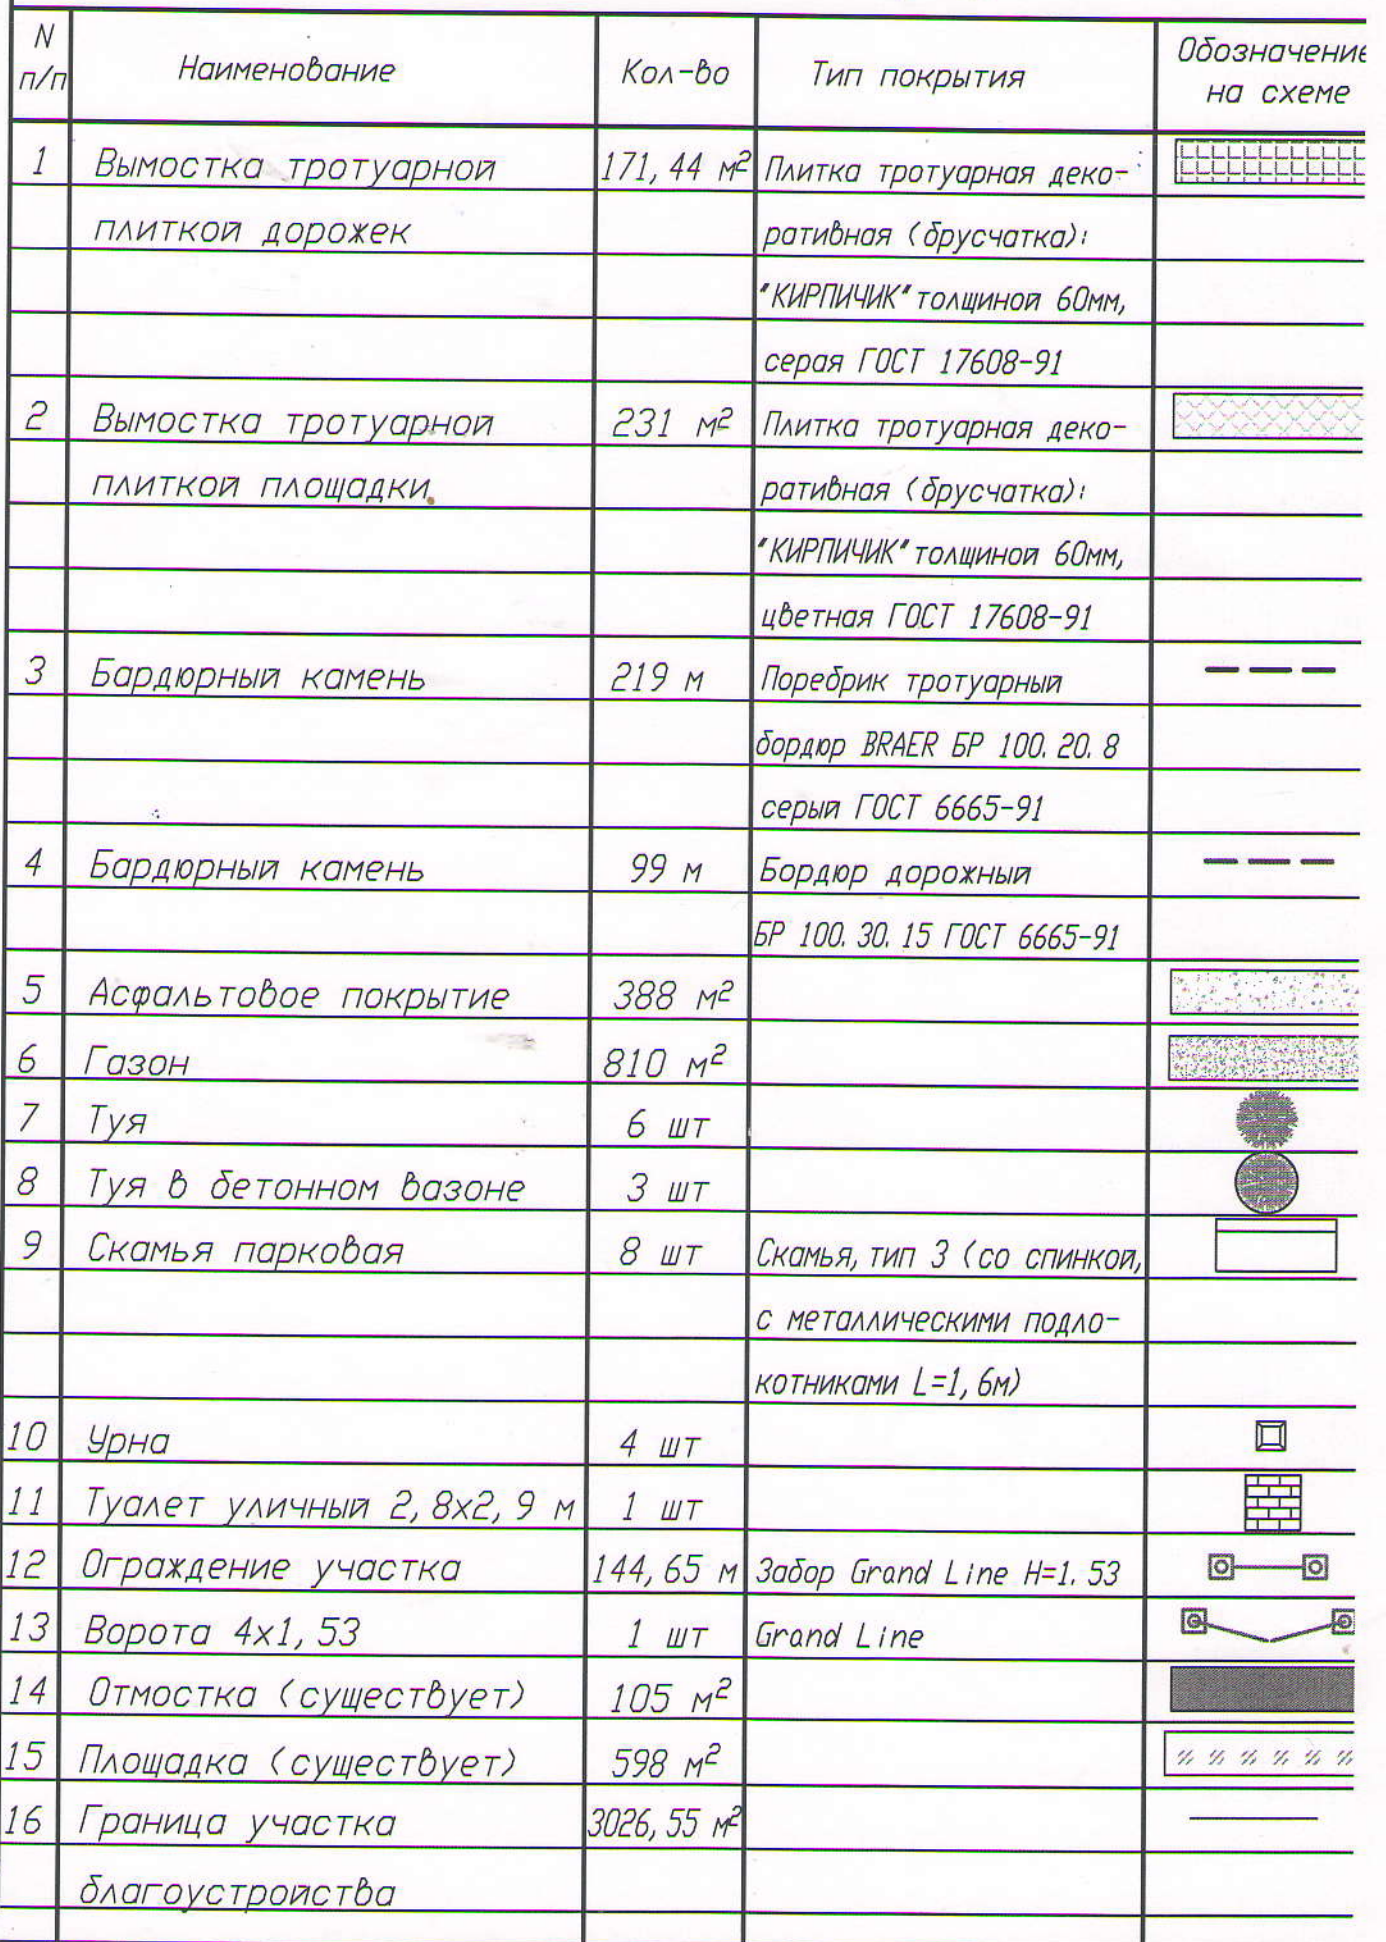 N п/п Наименование Кол-во Тип покрытия Обозначение на схеме
1 Вымостка тротуарной 171,44 м² Плитка тротуарная деко-
плиткой дорожек ративная (брусчатка):
"КИРПИЧИК" толщиной 60мм,
серая ГОСТ 17608-91
2 Вымостка тротуарной 231 м² Плитка тротуарная деко-
плиткой площадки. ративная (брусчатка):
"КИРПИЧИК" толщиной 60мм,
цветная ГОСТ 17608-91
3 Бардюрный камень 219 м Поребрик тротуарный
бордюр BRAER БР 100.20.8
серый ГОСТ 6665-91
4 Бардюрный камень 99 м Бордюр дорожный
БР 100.30.15 ГОСТ 6665-91
5 Асфальтовое покрытие 388 м²
6 Газон 810 м²
7 Туя 6 шт
8 Туя в бетонном вазоне 3 шт
9 Скамья парковая 8 шт Скамья, тип 3 (со спинкой,
с металлическими подло-
котниками L=1,6м)
10 Урна 4 шт
11 Туалет уличный 2,8х2,9 м 1 шт
12 Ограждение участка 144,65 м Забор Grand Line H=1.53
13 Ворота 4х1,53 1 шт Grand Line
14 Отмостка (существует) 105 м²
15 Площадка (существует) 598 м²
16 Граница участка 3026,55 м²
благоустройства